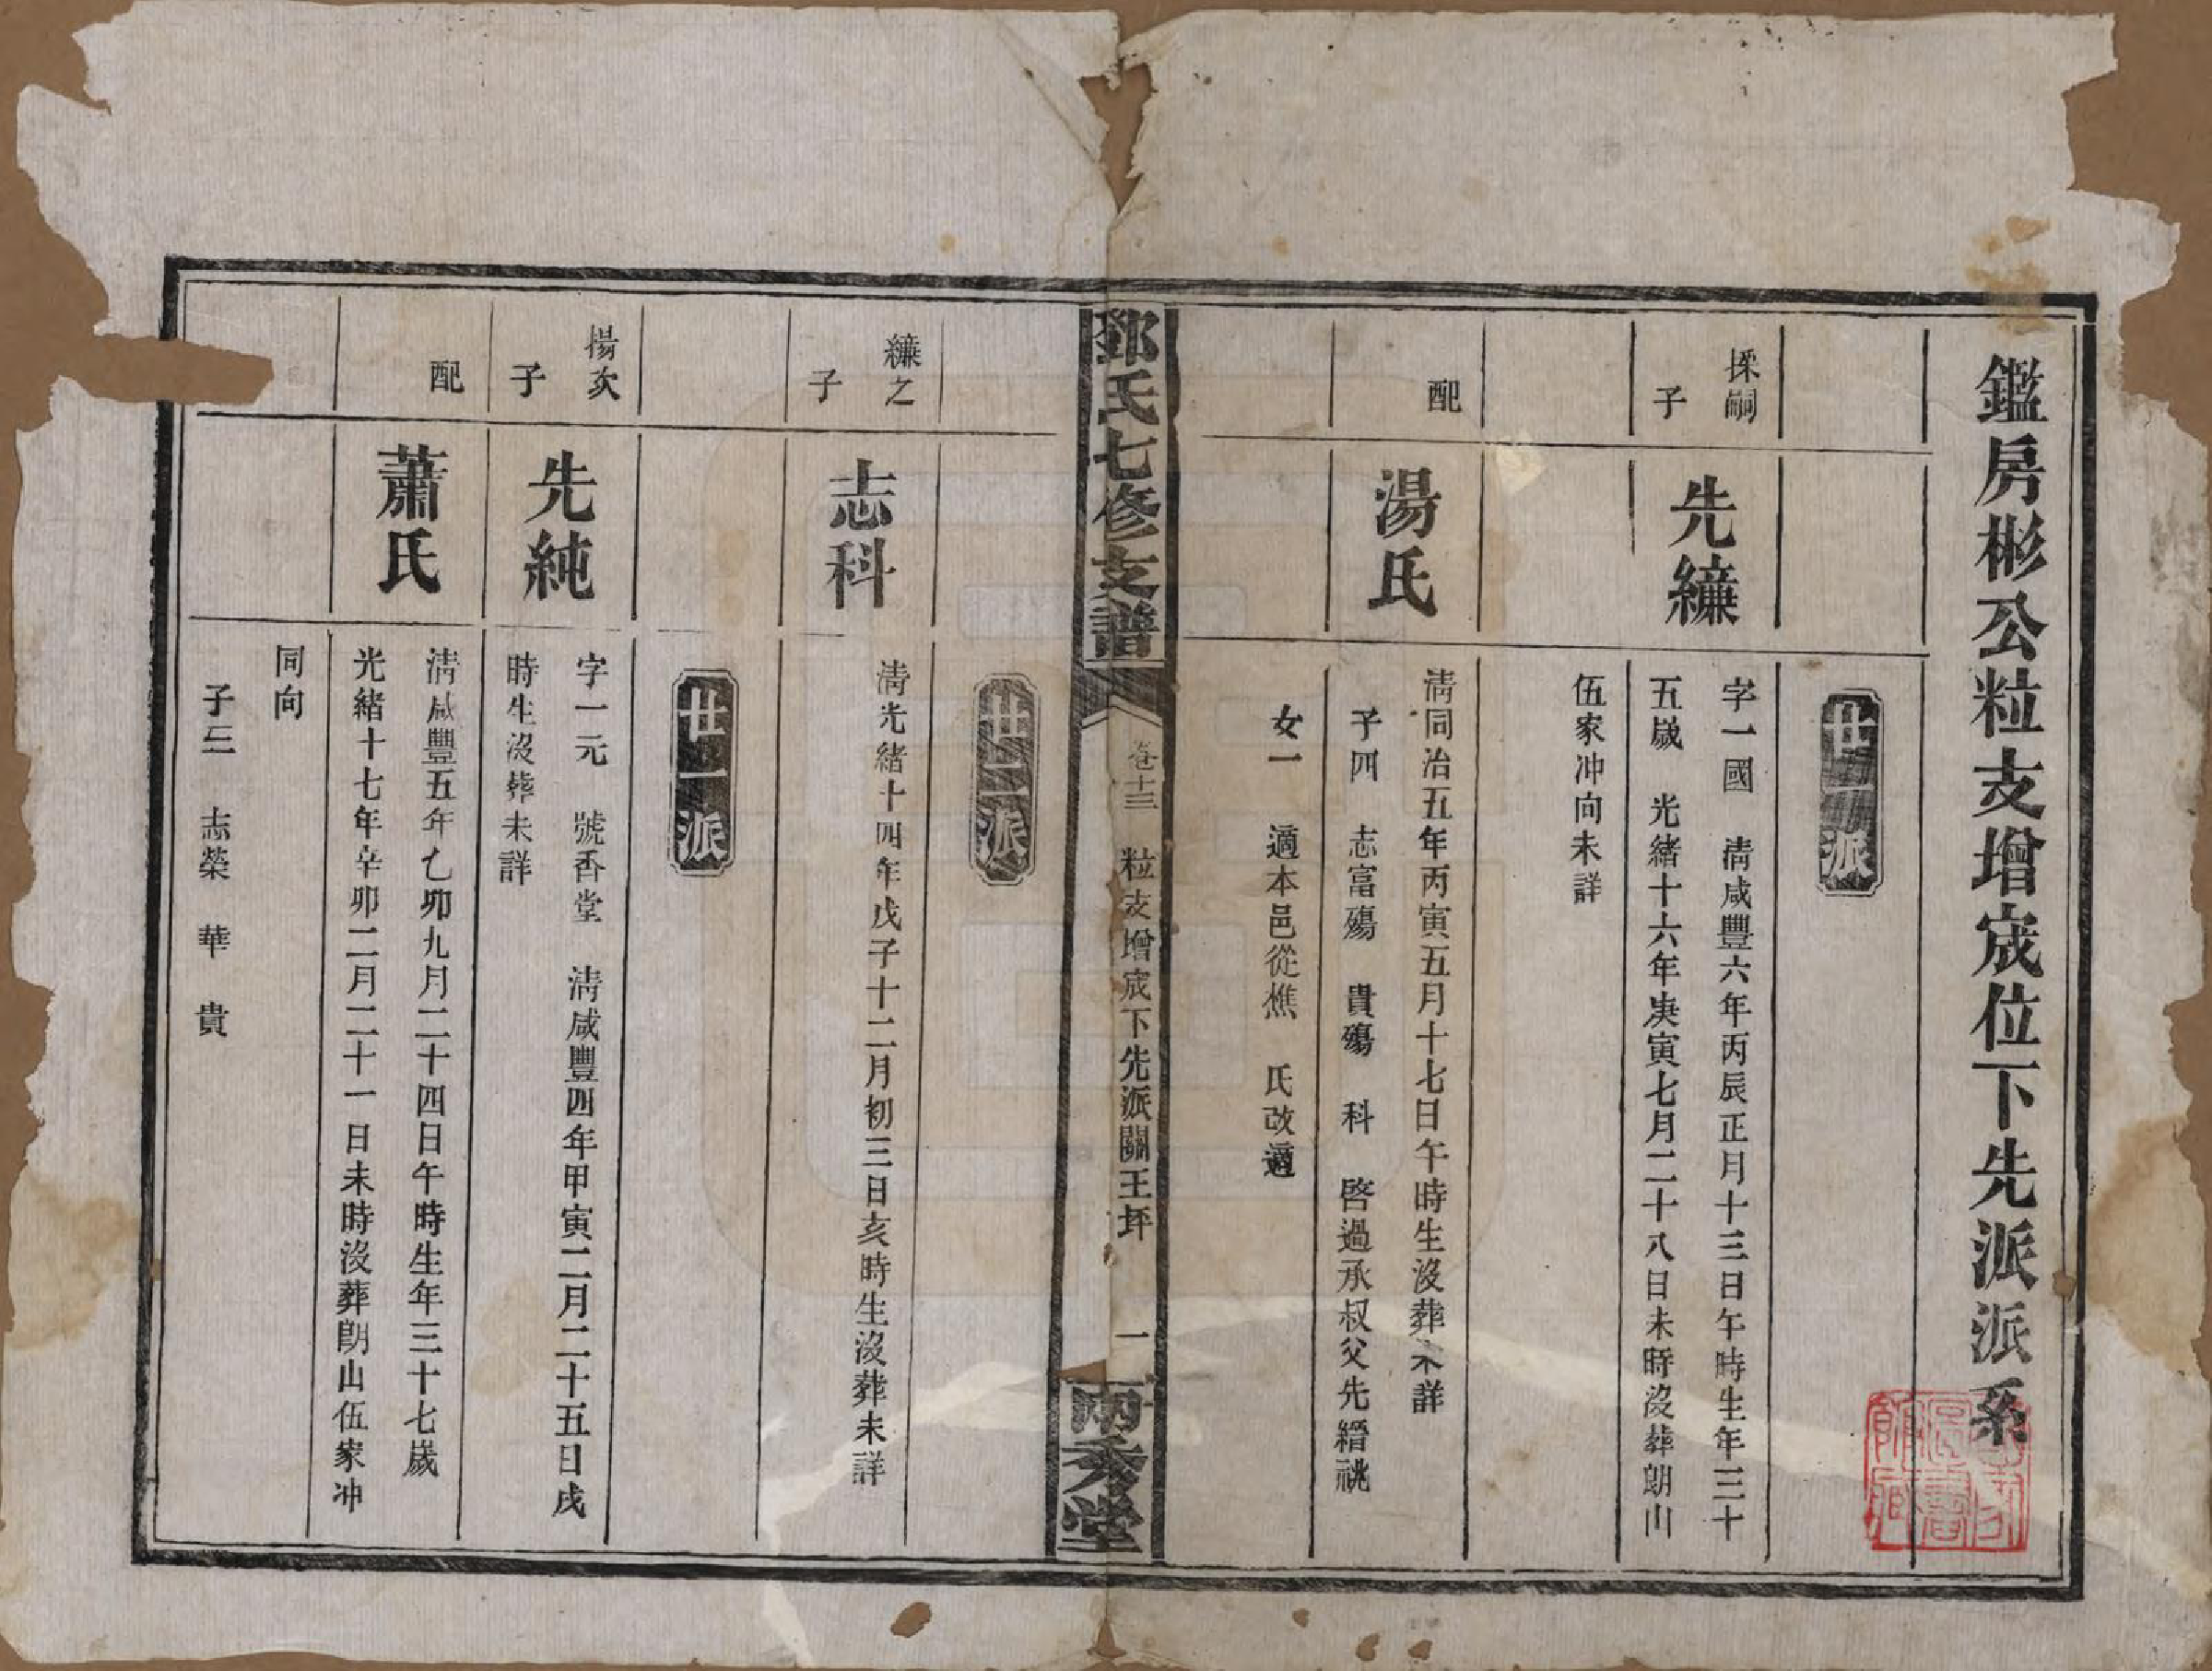 鑑房彬公粒支增宬位下先派派系
廿一派
揉嗣
子
先纁
字一國　清咸豐六年丙辰正月十三日午時生年三十
五嵗　光緒十六年庚寅七月二十八日未時沒葬朗山
伍家冲向未詳
配
湯氏
清同治五年丙寅五月十七日午時生沒葬未詳
子四　志富殤　貴殤　科　啓過承叔父先縉祧
女一　適本邑從樵　氏改適
鄧氏七修支譜
卷十三　粒支增宬下先派關王坪　一
兩秀堂
廿二派
子
志科
清光緒十四年戊子十二月初三日亥時生沒葬未詳
廿一派
楊次
子
先純
字一元　號香堂　清咸豐四年甲寅二月二十五日戌
時生沒葬未詳
配
蕭氏
清咸豐五年乙卯九月二十四日午時生年三十七嵗
光緒十七年辛卯二月二十一日未時沒葬朗山伍家冲
同向
子三　志榮　華　貴